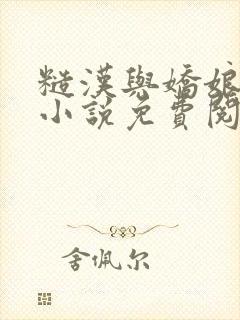 糙漢與嬌娘
小說免費閱
舍佩尔